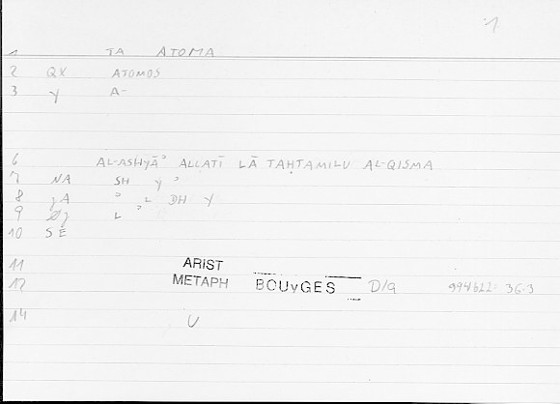 1
1 TA ATOMA
2 QX ATOMOS
3 Y A-
6 AL-ASHYĀʾ ALLATĪ LĀ TAḤTAMILU AL-QISMA
7 NA SH Y ʾ
8 ʾ L DH Y
9 L ʾ
10 SE
11 ARIST
12 METAPH BOUYGES D/9 994b22: 36.3
14 U